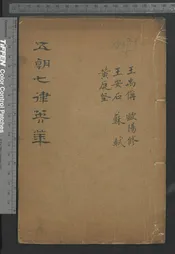 五朝七律英華
王禹偁 歐陽修
王安石 蘇軾
黃庭堅
TIFFEN Color Control Patches